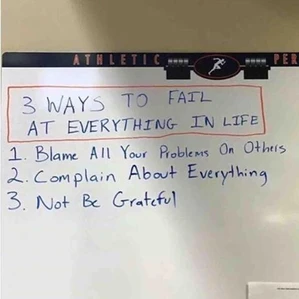 ATHLETIC PER
3 WAYS TO FAIL
AT EVERYTHING IN LIFE
1. Blame All Your Problems On Others
2. Complain About Everything
3. Not Be Grateful